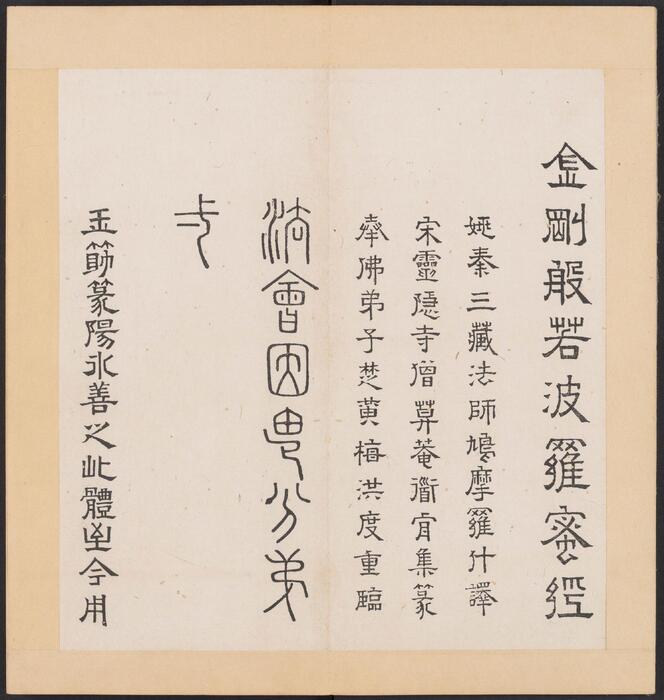 金剛般若波羅蜜經
姚秦三藏法師鳩摩羅什譯
宋靈隱寺僧莫菴道肯集篆
奉佛弟子楚黃梅洪度重臨
法會因由分弟
弌
玉筯篆陽冰善之此體至今用